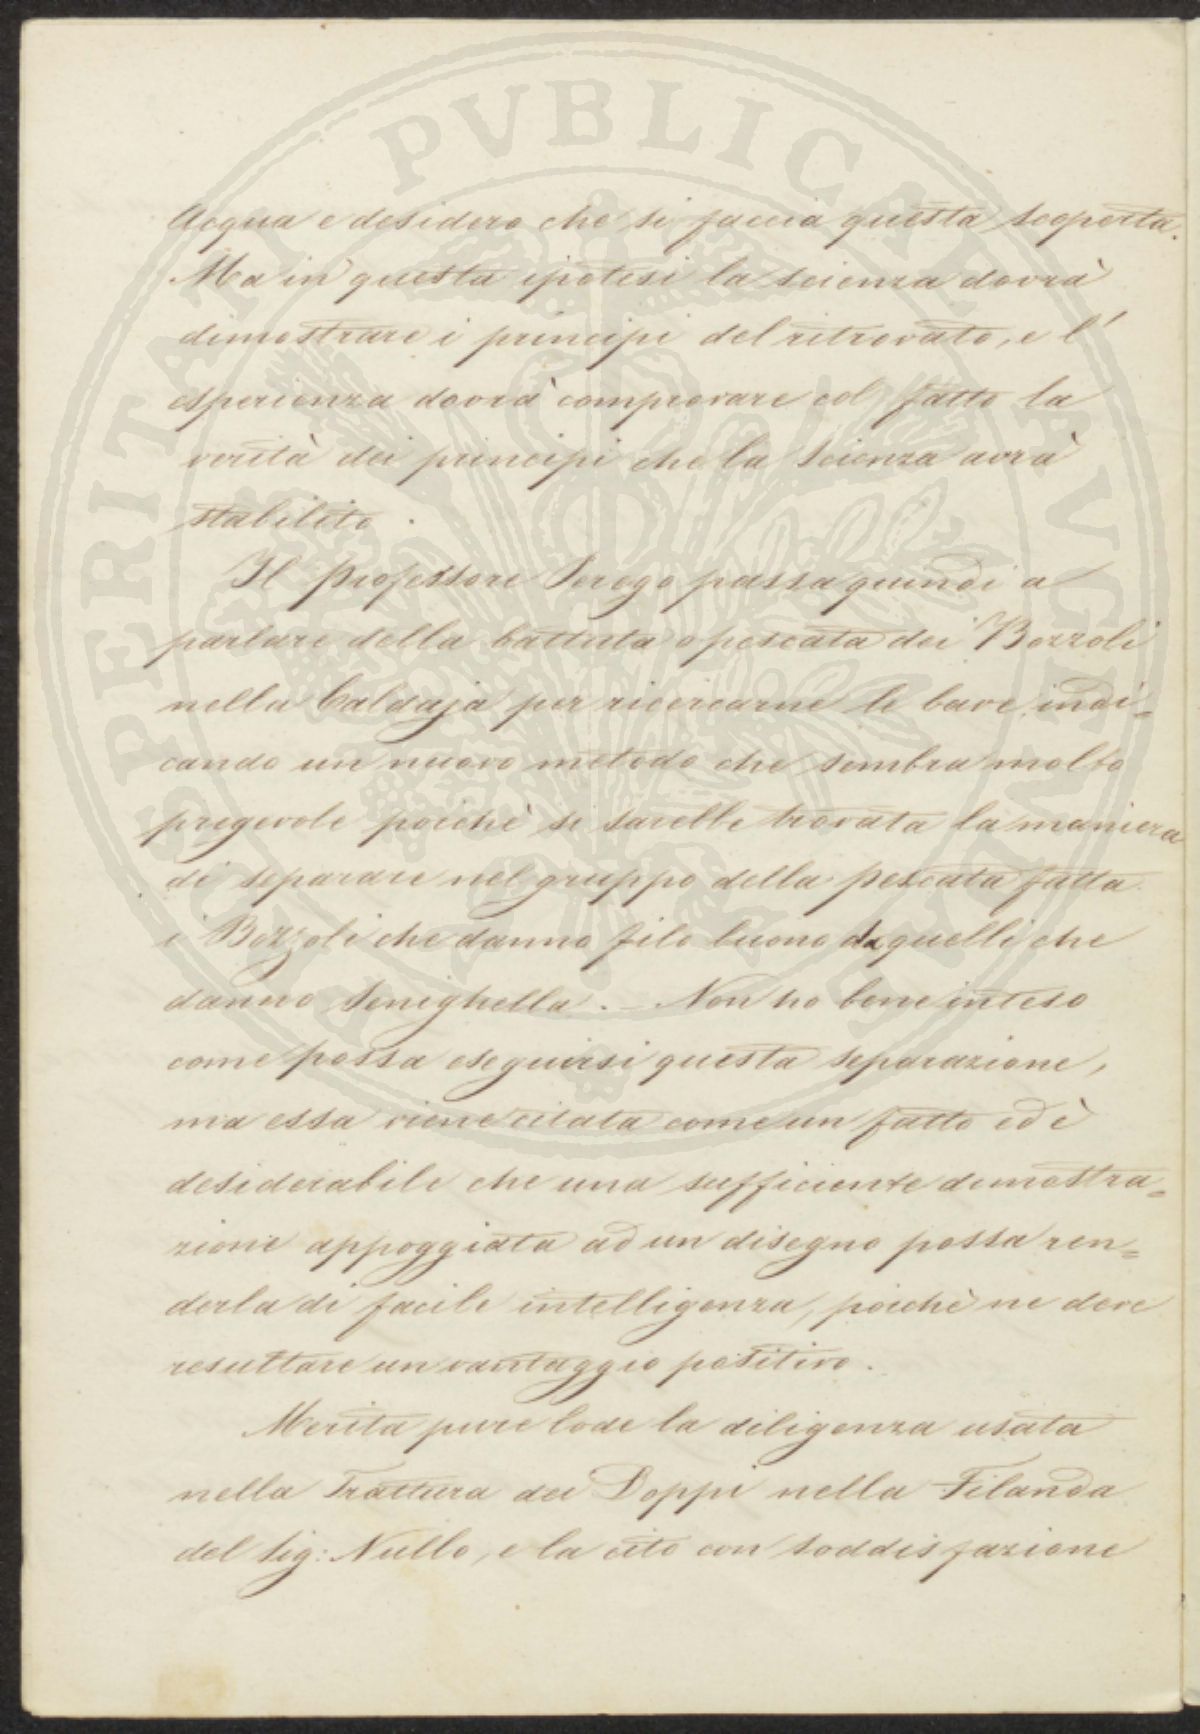 Acqua e desidero che si faccia questa scoperta.
Ma in questa ipotesi la scienza dovrà
dimostrare i principi del ritrovato, e l'
esperienza dovrà comprovare col fatto la
verità dei principi che la Scienza avrà
stabilito.
Il Professore Perego passa quindi a
parlare della battuta o pescata dei Bozzoli
nella Caldaja per ricercarne le bave indi=
cando un nuovo metodo che sembra molto
pregevole poichè si sarebbe trovata la maniera
di separare nel gruppo della pescata fatta
i Bozzoli che danno filo buono da quelli che
danno Strighella. Non ho bene inteso
come possa eseguirsi questa separazione,
ma essa viene citata come un fatto ed è
desiderabile che una sufficiente demostra=
zione appoggiata ad un disegno possa ren=
derla di facile intelligenza, poichè ne deve
resultare un vantaggio positivo.
Merita pure lode la diligenza usata
nella Trattura dei Doppi nella Filanda
del Sig: Nullo, e la cito con soddisfazione
PROSPERITATI PVBLICAE AVGENDAE